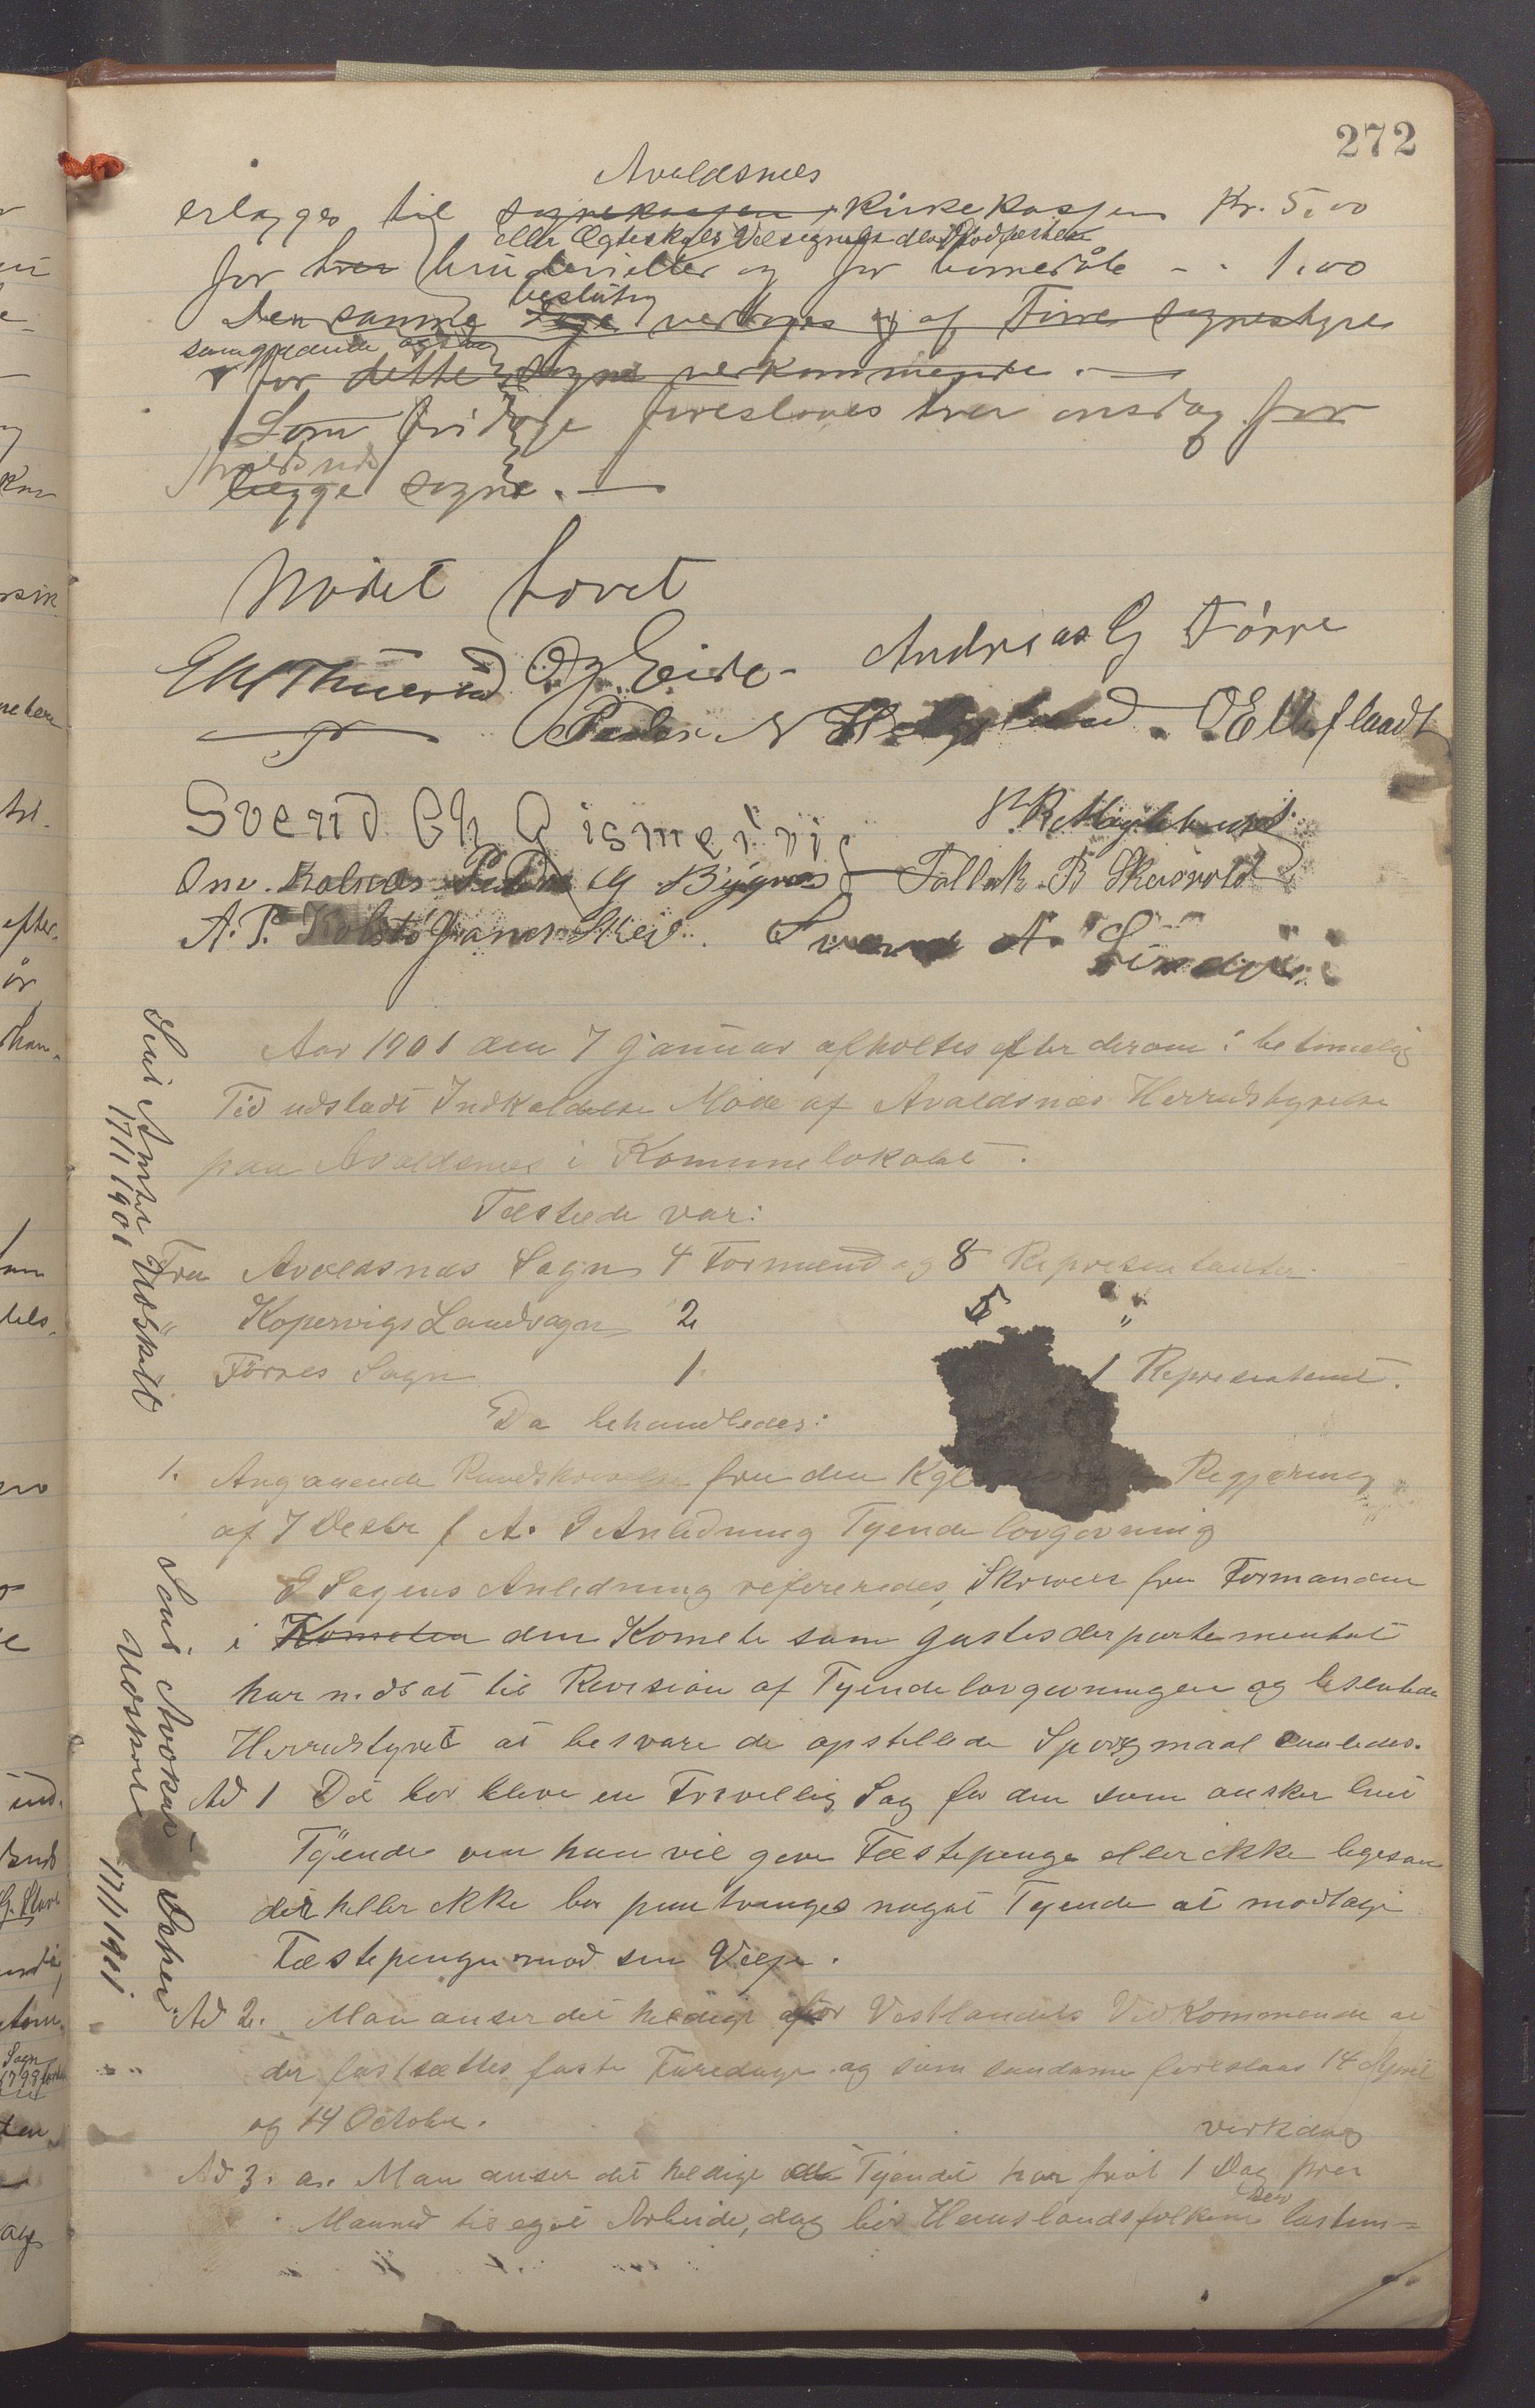 272
Avaldsnes
erlægges til sognekassen kirkekassen Kr. 5.00
eller Ægteskabs Velsignelse
for hver brudevielse og for barnedåb - - 1.00
beslutn
Den samme vedtages og af Førre sognestyre
samgjældende også
for dette sogns vedkommende. —
Som fridage foreslaaes hver onsdag for
Avaldsnes
begge sogne. —
Mødet hævet
O. J. Eide Andreas G Førre
Peder N Helgeland O Elleflaadt
Svend Ch Gismervig
Om. Kolnes Peder G Bygnes Falkak B Skeisvold
A. P. Kolstø Skeie. Svend A.
Aar 1901 den 7 Januar afholtes efter derom i betimelig
Tid udstædt Indkaldelse Møde af Avaldsnes Herredstyrelse
paa Avaldsnes i Komunelokalet.
Tilstede var:
Fra Avaldsnes Sogn 4 Formænd og 8 Repræsentanter
" Kopervigs Landsogn 2 5 "
Førres Sogn 1 1 Representant.
Da behandledes:
1. Angaaende Rundskrivelse fra den Kgl Regjering
af 7 Decbr f A. I Anledning Tyendelovgivning
I Sagens Anledning refereredes, Skriven fra Formanden
i Kometen den Komete som Justisdepartementet
har nedsat til Revision af Tyendelovgivningen og besluttede
Herredstyret at besvare de opstillede Spørgmaal saaledes.
Ad 1 Det bør blive en Frivillig Sag for den som ønsker leie
Tyende om han vil give Fæstepenge eller ikke ligesom
det heller ikke bør paatvinges noget Tyende at modtage
Fæstepenge mod sin Vilje.
Ad 2. Man anser det heldigt for Vestlandets Vedkommende at
der fastsættes faste Faredage og som saadanne foreslaaes 14 April
og 14 October.
virkdag
Ad 3. a. Man anser det heldige at Tyendet har frit 1 Dag hver
Maaned til eget Arbeide, dog bør Husbondsfolkene bestem=
Sent Amtet Udskrift
17/1 1901
Sent Avokat
Udskrift 17/1 1901